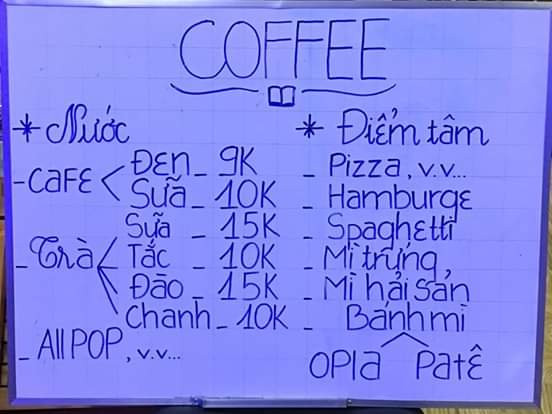 COFFEE
* Nước
- CAFE < Đen _ 9K
Sữa _ 10K
- Trà < Sữa _ 15K
Tắc _ 10K
Đào _ 15K
Chanh _ 10K
_ All POP, v.v...
* Điểm tâm
_ Pizza, v.v...
_ Hamburge
_ Spaghetti
_ Mì trứng
_ Mì hải sản
_ Bánh mì
OPla Patê